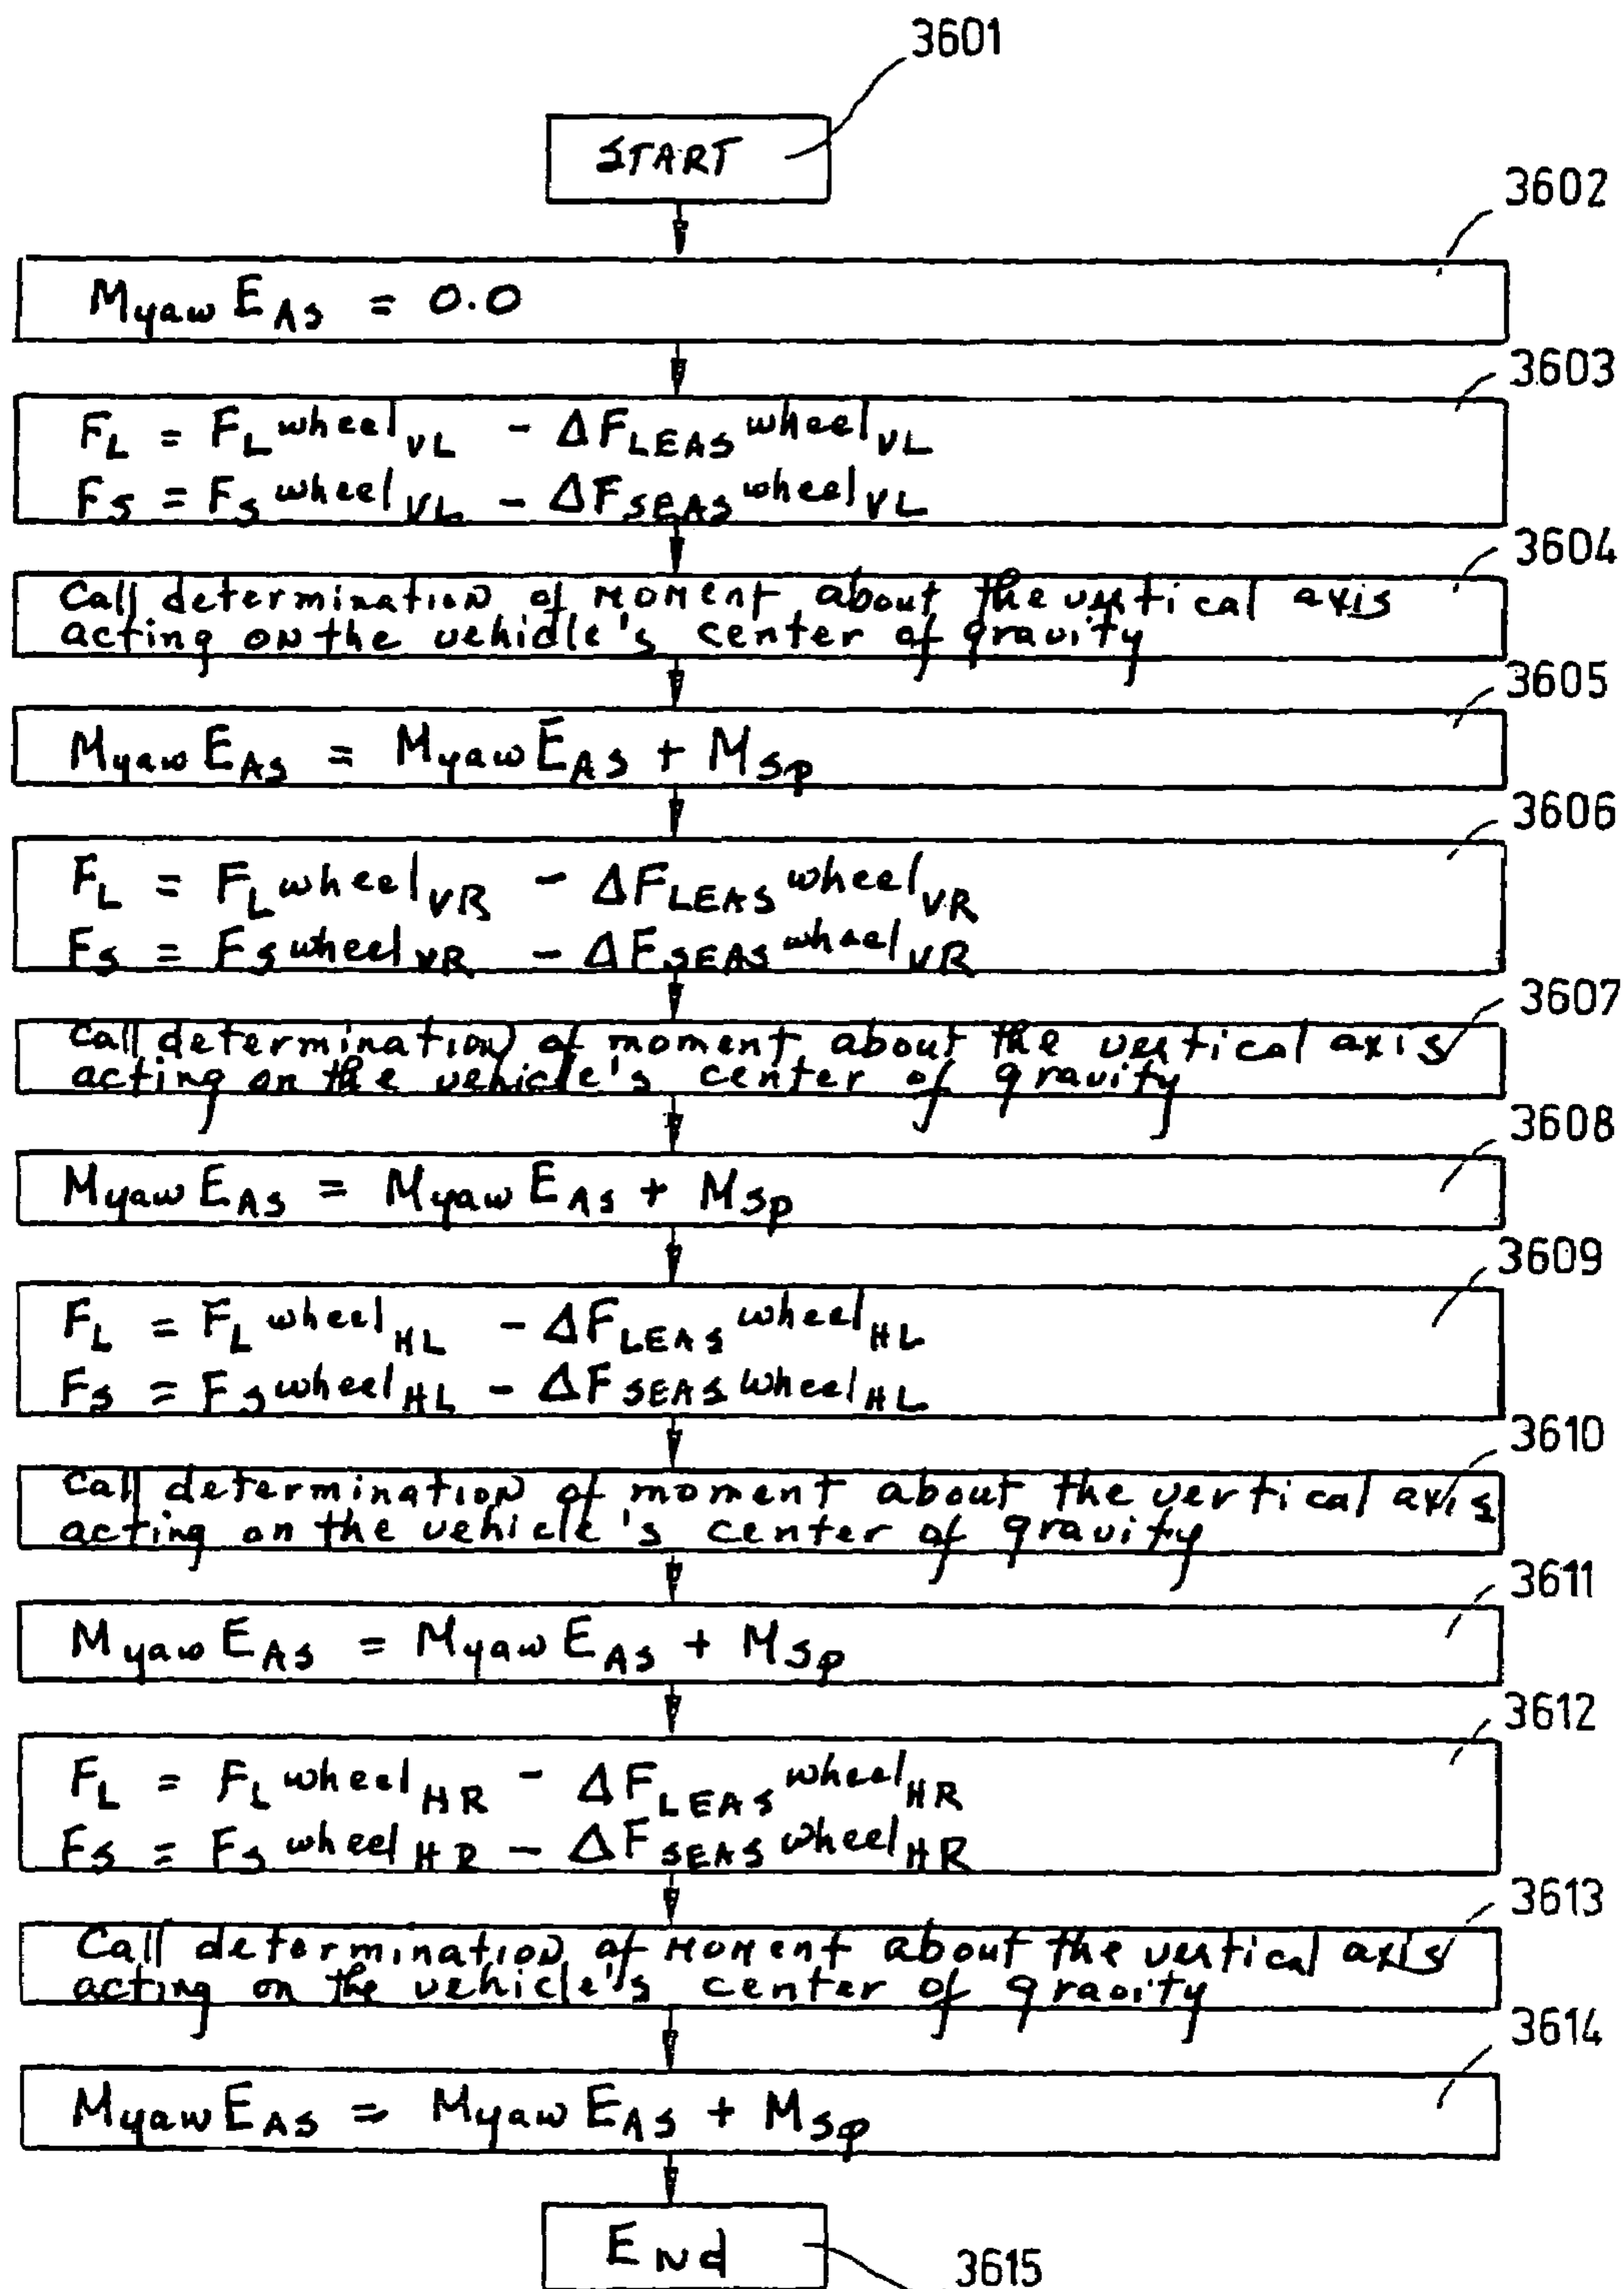 3601
START
3602
M_yaw E_AS = 0.0
3603
F_L = F_L wheel_VL - ΔF_LEAS wheel_VL
F_S = F_S wheel_VL - ΔF_SEAS wheel_VL
3604
Call determination of moment about the vertical axis
acting on the vehicle's center of gravity
3605
M_yaw E_AS = M_yaw E_AS + M_Sp
3606
F_L = F_L wheel_VR - ΔF_LEAS wheel_VR
F_S = F_S wheel_VR - ΔF_SEAS wheel_VR
3607
Call determination of moment about the vertical axis
acting on the vehicle's center of gravity
3608
M_yaw E_AS = M_yaw E_AS + M_Sp
3609
F_L = F_L wheel_HL - ΔF_LEAS wheel_HL
F_S = F_S wheel_HL - ΔF_SEAS wheel_HL
3610
Call determination of moment about the vertical axis
acting on the vehicle's center of gravity
3611
M_yaw E_AS = M_yaw E_AS + M_Sp
3612
F_L = F_L wheel_HR - ΔF_LEAS wheel_HR
F_S = F_S wheel_HR - ΔF_SEAS wheel_HR
3613
Call determination of moment about the vertical axis
acting on the vehicle's center of gravity
3614
M_yaw E_AS = M_yaw E_AS + M_Sp
End
3615